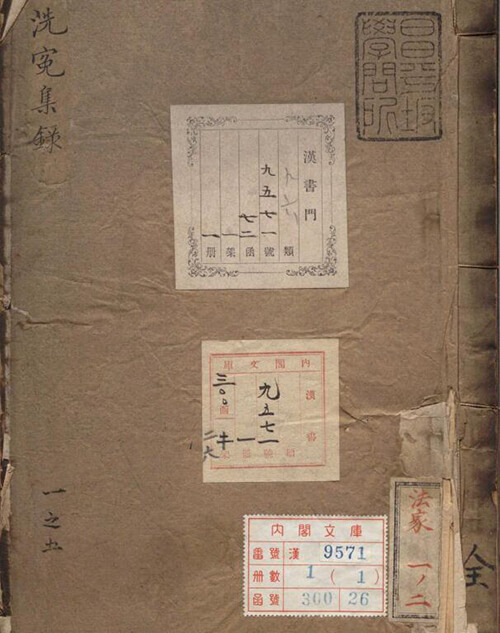 洗冤集錄
昌平坂
學問所
漢書門
類
九五七一
號
七二
函
一
架
一
册
內閣文庫
漢書
九五七一
號
一
册
三〇〇
函
二六
一之五
法家
一ノ二
全
內閣文庫
番號 漢 9571
册數 1 (1)
函號 300 26